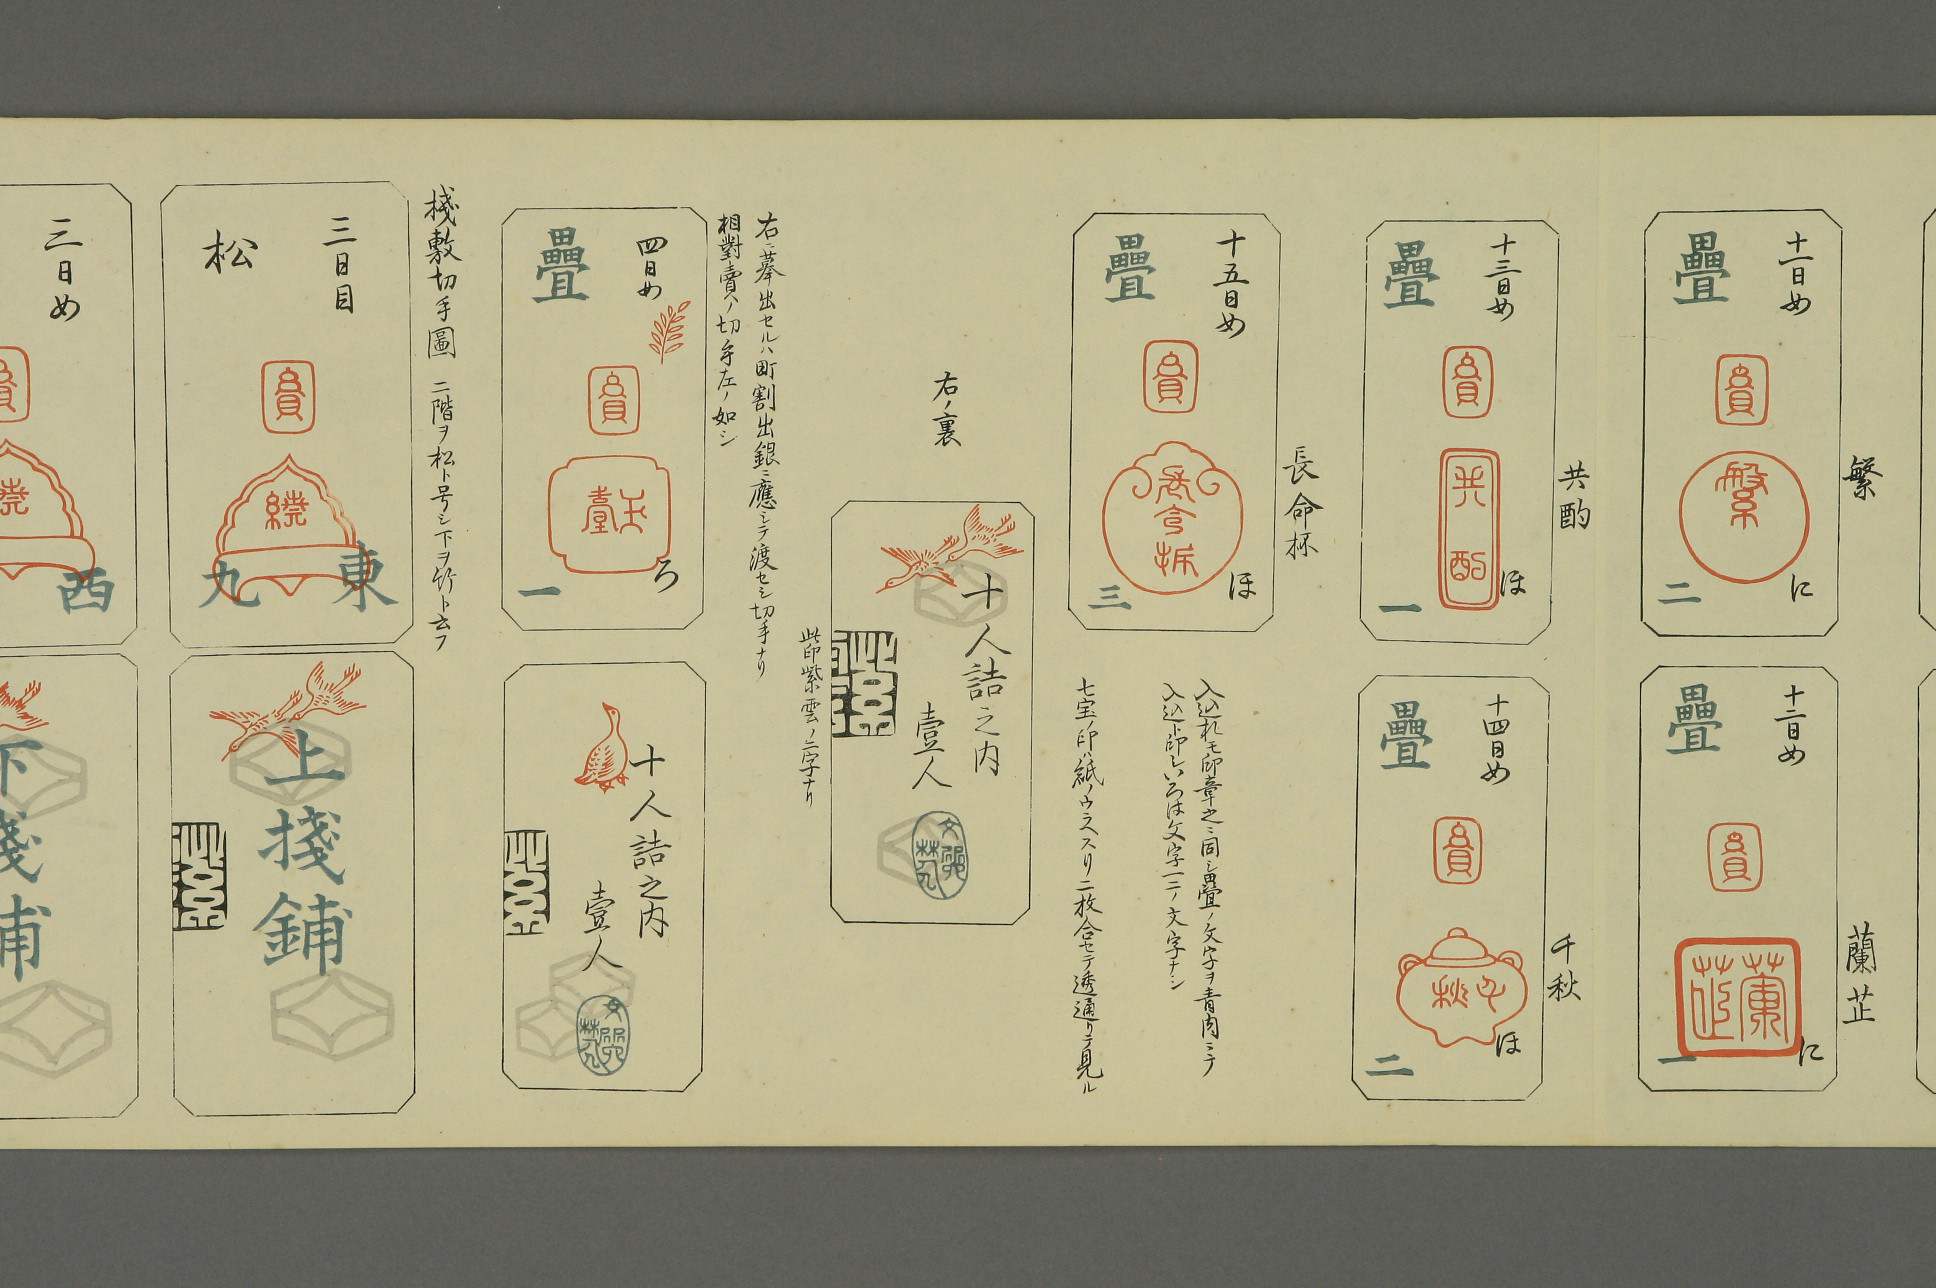 繁
十一日め
疊
貟
繁
に
二
蘭芷
十二日め
疊
貟
蘭芷
に
一
共酌
十三日め
疊
貟
共酌
ほ
一
千秋
十四日め
疊
貟
秋
ほ
二
長命杯
十五日め
疊
貟
ほ
三
入込札モ印章之ニ同シ疊ノ文字ヲ青肉ニテ
入込ト印シいろは文字一二ノ文字ナシ
七宝ノ印ハ紙ノウラスリ二枚合セテ透通リテ見ル
右ノ裏
十人詰之内
壹人
此印紫雲ノ二字ナリ
右ニ摹出セルハ町割出銀ニ應シテ渡セシ切手ナリ
相對賣ノ切手左ノ如シ
四日め
疊
貟
ろ
一
十人詰之内
壹人
棧敷切手圖 二階ヲ松ト号シ下ヲ竹ト云フ
三日目
松
貟
繞
東
九
上棧鋪
三日め
貟
繞
西
下棧鋪